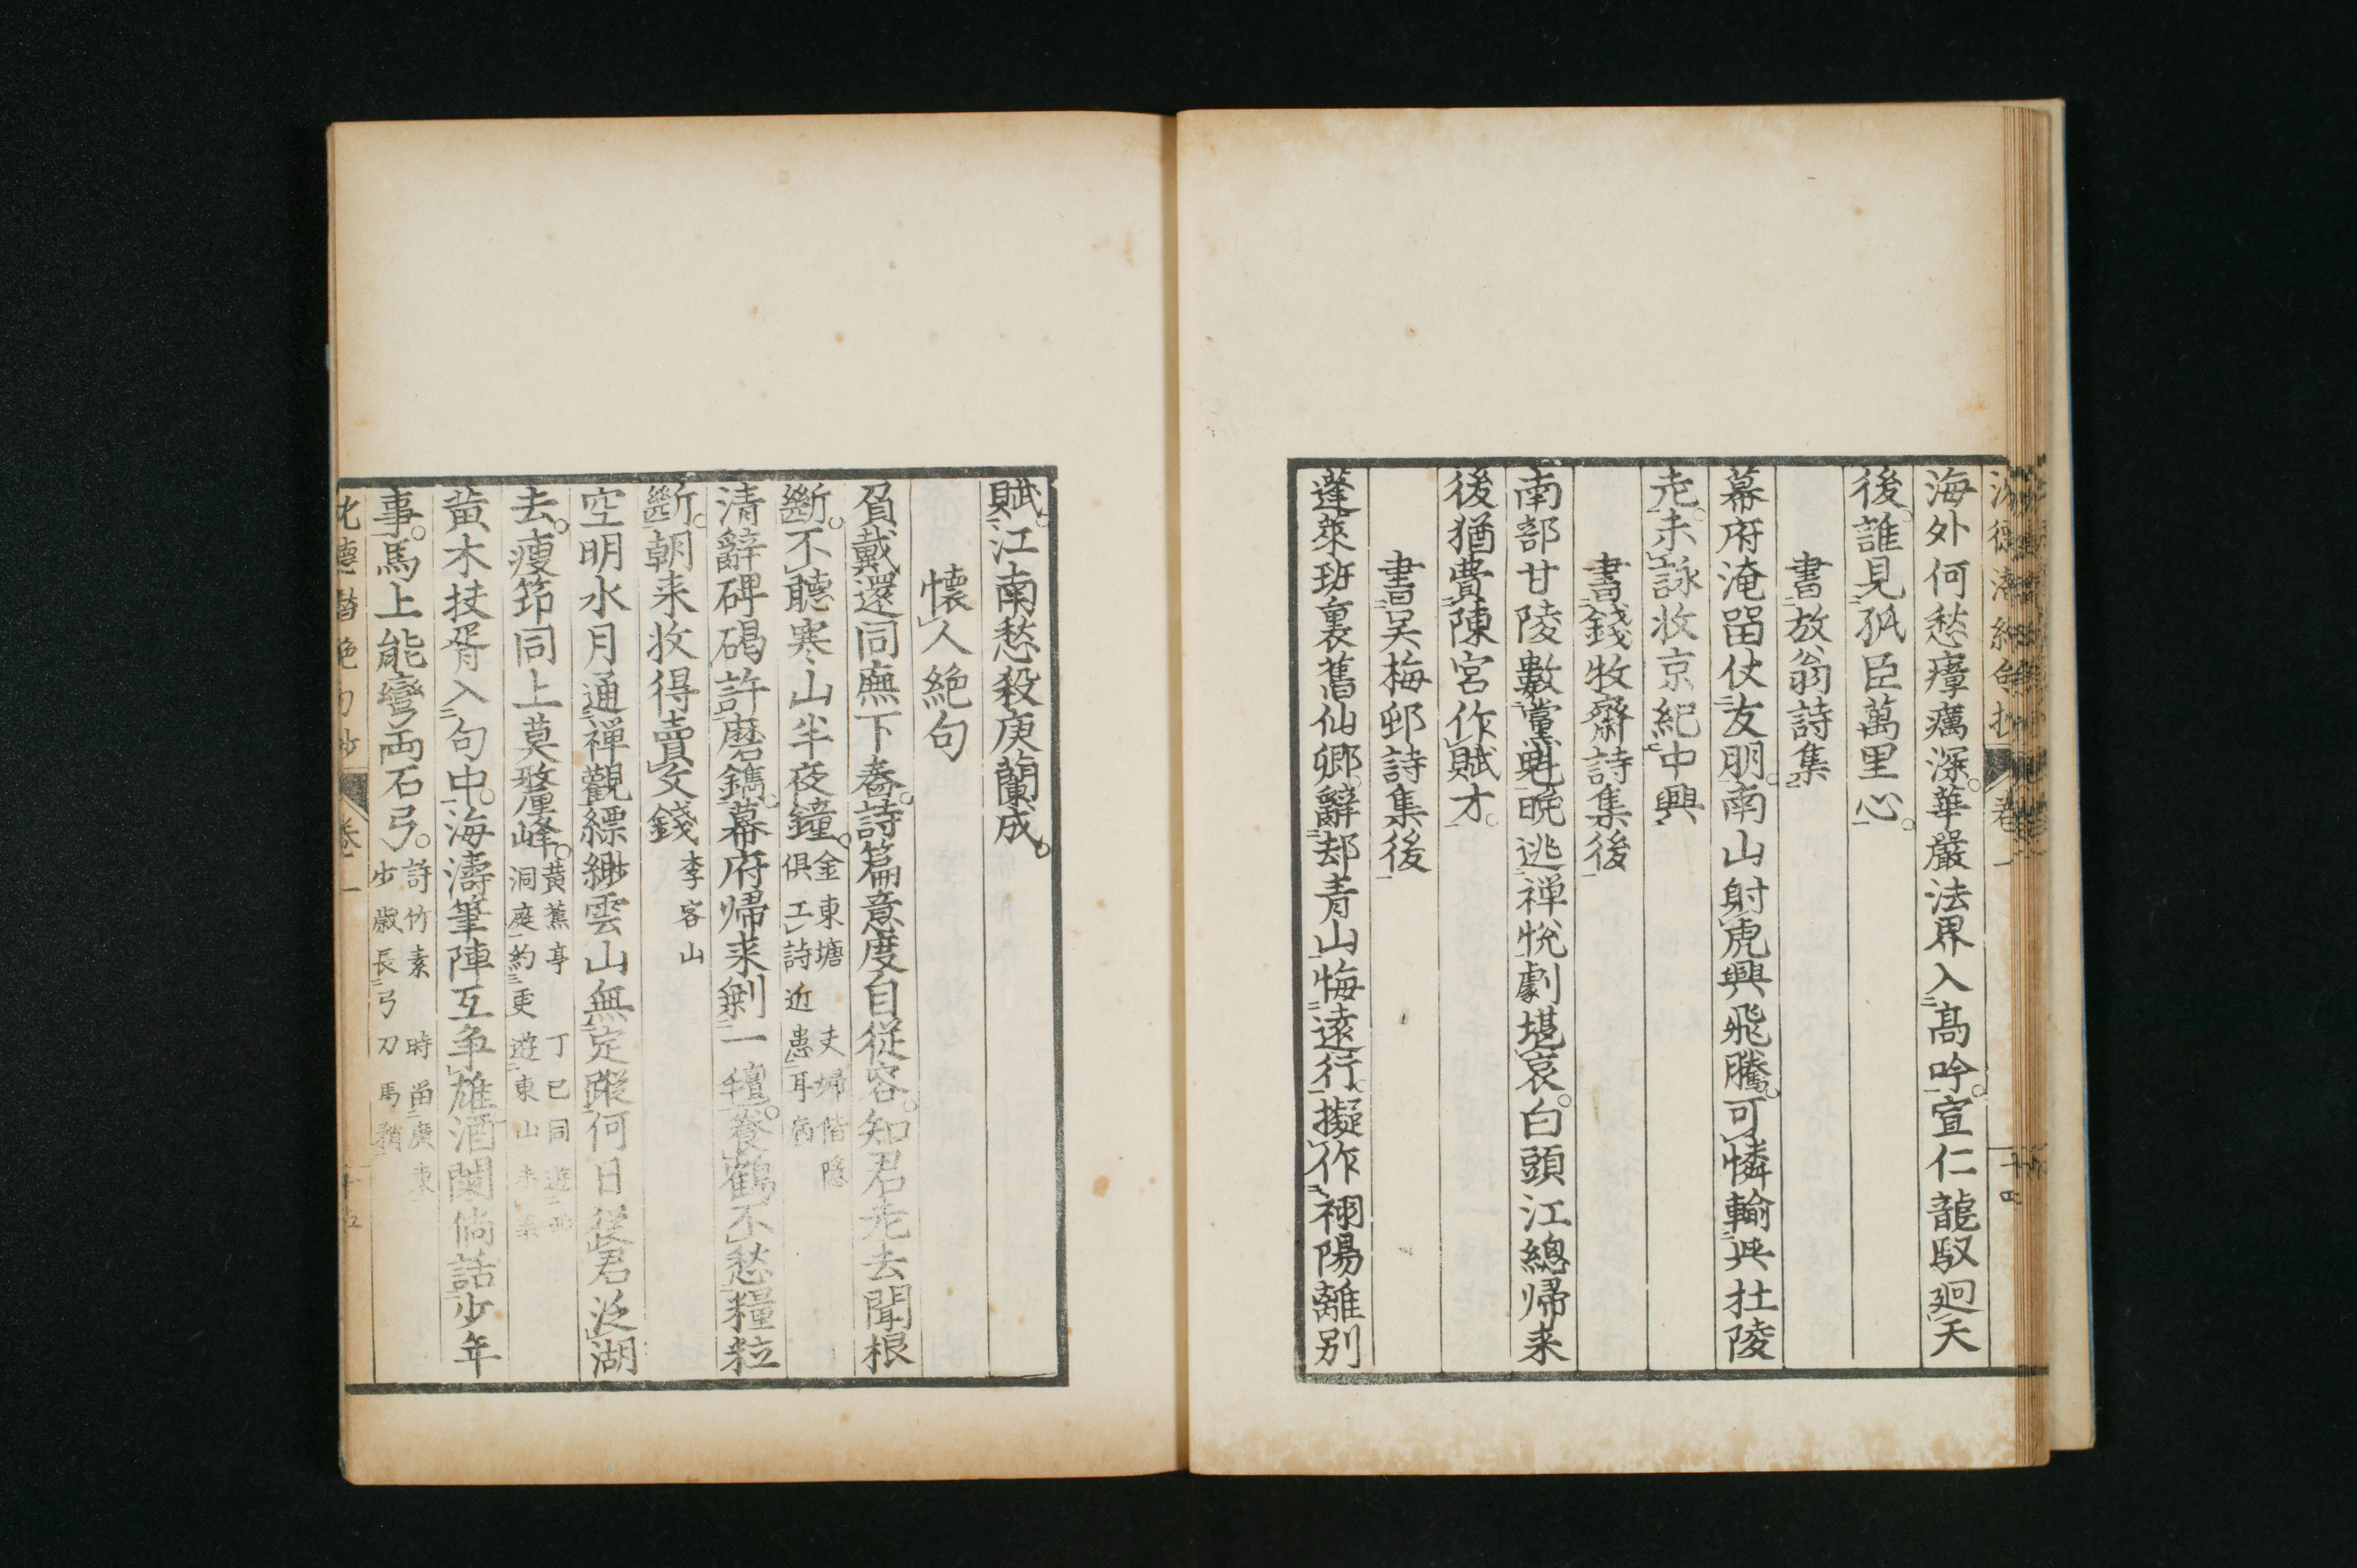 海外何愁瘴癘深。華嚴法界入高吟。宣仁龍馭廻天
後。誰見孤臣萬里心。
書放翁詩集
幕府淹留仗友朋。南山射虎興飛騰。可憐輸與杜陵
老。未詠收京紀中興
書錢牧齋詩集後
南部甘陵數黨魁晚逃禅悅劇堪哀。白頭江總帰来
後猶費陳宮作賦才。
書吴梅邨詩集後
蓬萊班裏舊仙卿。辭却青山悔遠行。擬作河陽離别
賦。江南愁殺庾蘭成。
懐人絶句
負戴還同廡下舂。詩篇意度自從容。知君老去聞根
斷。不聽寒山半夜鐘。金東塘夫婦偕隠
俱工詩近患耳病
清辭碑碣許磨鐫。幕府帰来剩一氊。養鶴不愁糧粒
斷。朝来收得賣文錢 李客山
空明水月通禅觀縹緲雲山無定蹤何日從君泛湖
去。瘦筇同上莫釐峰。黄蕉亭 丁巳同遊
洞庭約更遊東山未果
黄木扶胥入句中。海濤筆陣互争雄酒闌倘話少年
事。馬上能彎両石弓。許竹素 時留廣東
少嵗長弓刀馬矟
卷一